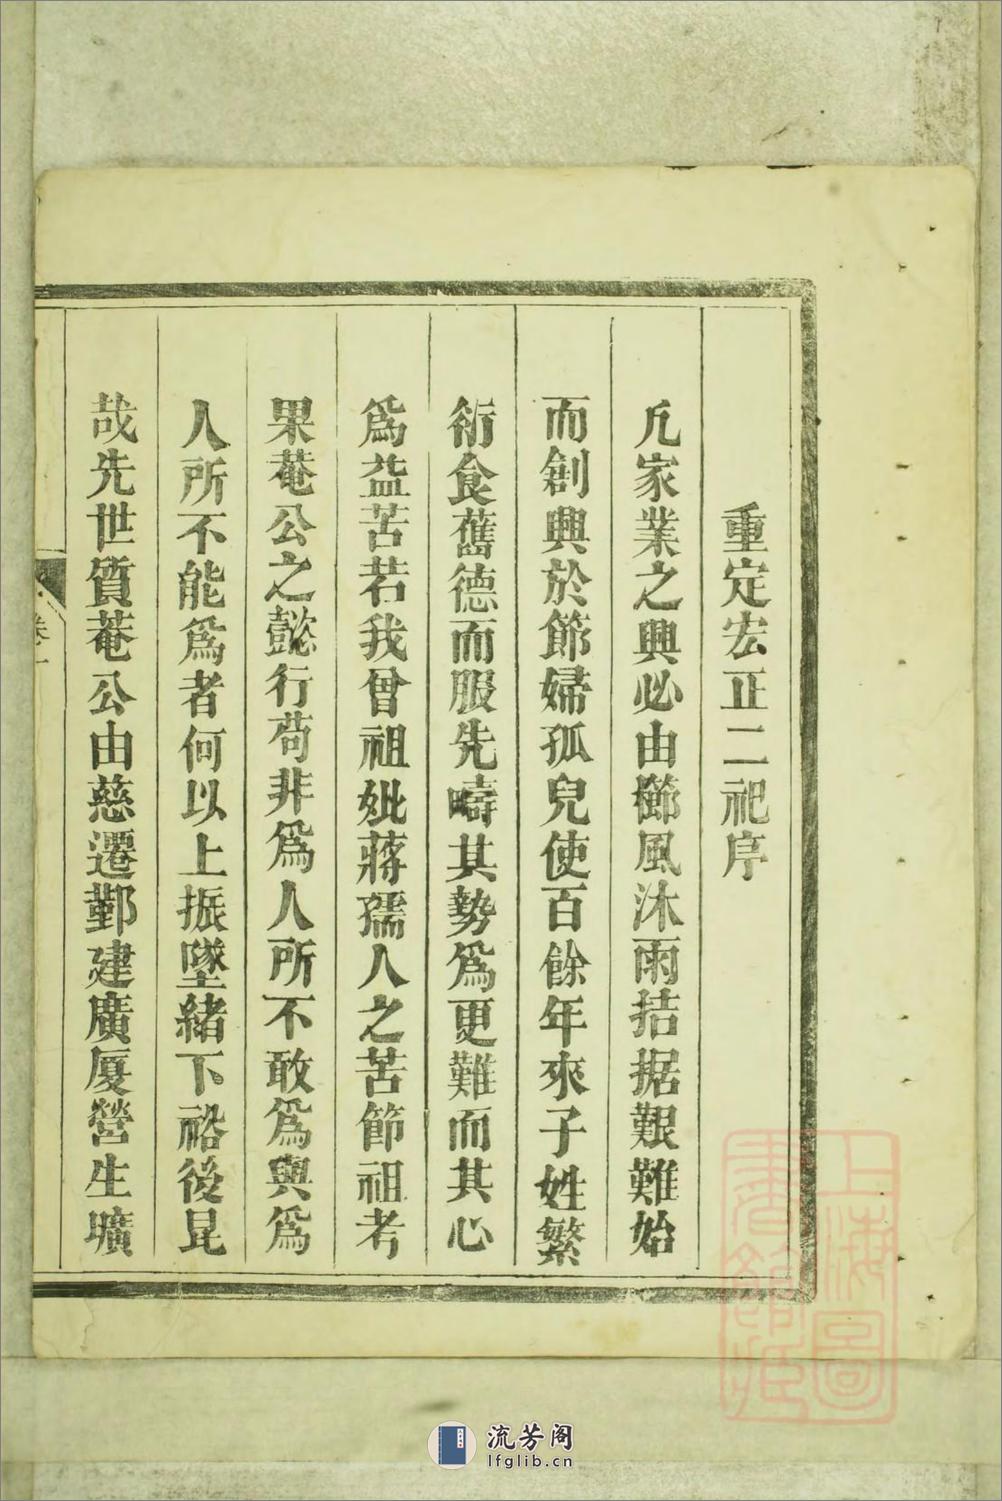 重定宏正二祀序
凡家業之興必由櫛風沐雨拮据艱難始
而創興於節婦孤兒使百餘年來子姓繁
衍食舊德而服先疇其勢為更難而其心
為益苦若我曾祖妣蔣孺人之苦節祖考
果菴公之懿行苟非為人所不敢為與為
人所不能為者何以上振墜緒下裕後昆
哉先世質菴公由慈遷鄞建廣厦營生壙
卷一
上海圖
書館藏
流芳阁
lfglib.cn